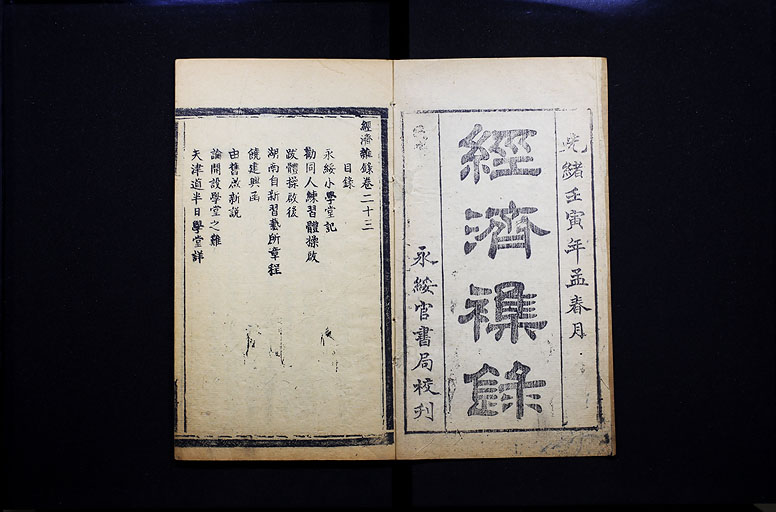 光緒壬寅年孟春月
經濟襍錄
永綏官書局校刋
經濟雜錄卷二十三
目錄
永綏小學堂記
勸同人練習體操啟
跋體操啟後
湖南自新習藝所章程
饒建興函
由舊成新說
論開設學堂之難
天津道半日學堂詳